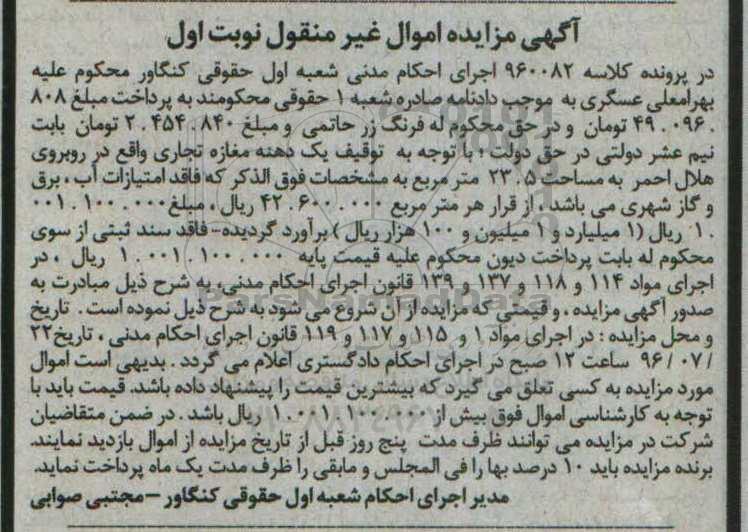 آگهی مزایده اموال غیر منقول نوبت اول
در پرونده کلاسه ۹۶۰۰۸۲ اجرای احکام مدنی شعبه اول حقوقی کنگاور محکوم علیه
بهرامعلی عسگری به موجب دادنامه صادره شعبه ۱ حقوقی محکومند به پرداخت مبلغ ۸۰۸
.۴۹.۰۹۶ تومان و در حق محکوم له فرنگ زر حاتمی و مبلغ ۲.۴۵۴.۸۴۰ تومان بابت
نیم عشر دولتی در حق دولت ؛ با توجه به توقیف یک دهنه مغازه تجاری واقع در روبروی
هلال احمر به مساحت ۲۳.۵ متر مربع به مشخصات فوق الذکر که فاقد امتیازات آب ، برق
و گاز شهری می باشد ، از قرار هر متر مربع ۴۲.۶۰۰.۰۰۰ ریال ، مبلغ ۰۰۱.۱۰۰.۰۰۰
.۱ ریال (۱ میلیارد و ۱ میلیون و ۱۰۰ هزار ریال ) برآورد گردیده- فاقد سند ثبتی از سوی
محکوم له بابت پرداخت دیون محکوم علیه قیمت پایه ۱.۰۰۱.۱۰۰.۰۰۰ ریال ، در
اجرای مواد ۱۱۴ و ۱۱۸ و ۱۳۷ و ۱۳۹ قانون اجرای احکام مدنی، به شرح ذیل مبادرت به
صدور آگهی مزایده ، و قیمتی که مزایده از آن شروع می شود به شرح ذیل نموده است . تاریخ
و محل مزایده : در اجرای مواد ۱ و ۱۱۵ و ۱۱۷ و ۱۱۹ قانون اجرای احکام مدنی ، تاریخ ۲۲
/ ۰۷/ ۹۶ ساعت ۱۲ صبح در اجرای احکام دادگستری اعلام می گردد . بدیهی است اموال
مورد مزایده به کسی تعلق می گیرد که بیشترین قیمت را پیشنهاد داده باشد. قیمت باید با
توجه به کارشناسی اموال فوق بیش از ۱.۰۰۱.۱۰۰.۰۰۰ ریال باشد . در ضمن متقاضیان
شرکت در مزایده می توانند ظرف مدت پنج روز قبل از تاریخ مزایده از اموال بازدید نمایند.
برنده مزایده باید ۱۰ درصد بها را فی المجلس و مابقی را ظرف مدت یک ماه پرداخت نماید.
مدیر اجرای احکام شعبه اول حقوقی کنگاور – مجتبی صوابی
ParsNamadData